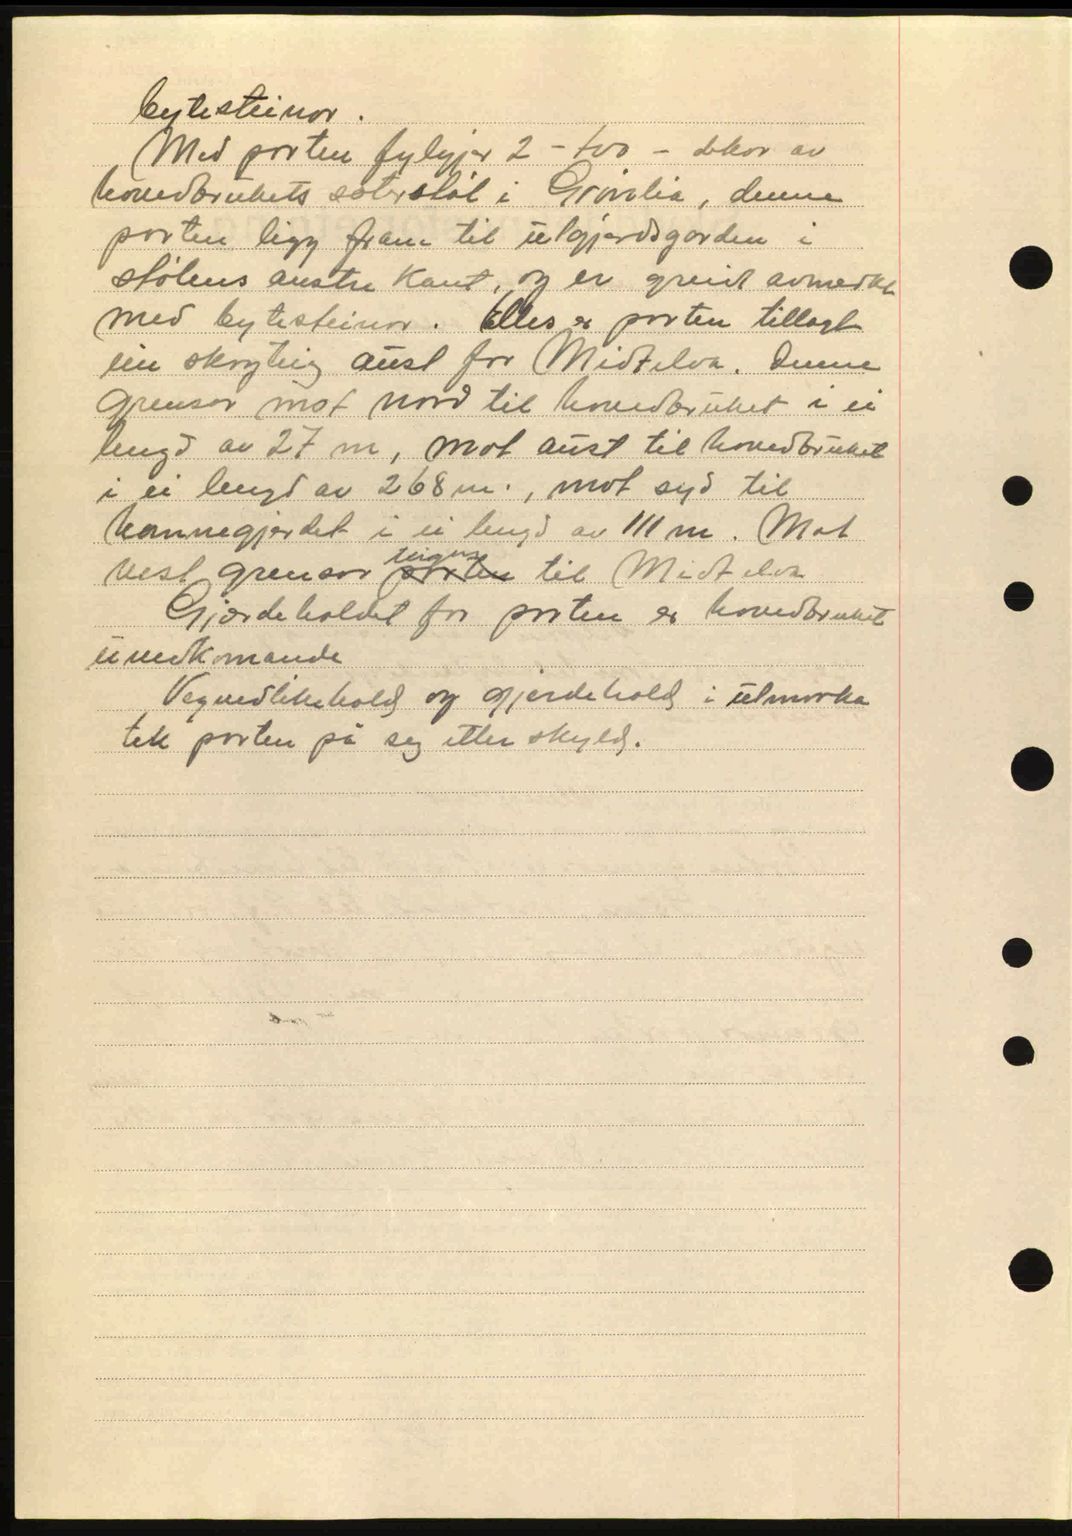 bytesteinor.
Med parten fylgjer 2 - tvo - dekar av
hovedbrukets sæterstøl i Grøvlia, denne
parten ligg fram til utgjerdsgarden i
stølens austre kant, og er greid avmerkt
med bytesteinor. Elles er parten tillagt
ein skogteig aust for Midtelva. Denne
grensar mot nord til hovedbruket i ei
lengd av 27 m, mot aust til hovedbruket
i ei lengd av 268 m., mot syd til
hamnegjerdet i ei lengd av 111 m. Mot
vest grensar teigen parten til Midtelva
Gjærdeholdet for parten er hovedbruket
uvedkomande
Vegvedlikehold og gjerdehold i utmarka
tek parten på seg etter skyld.